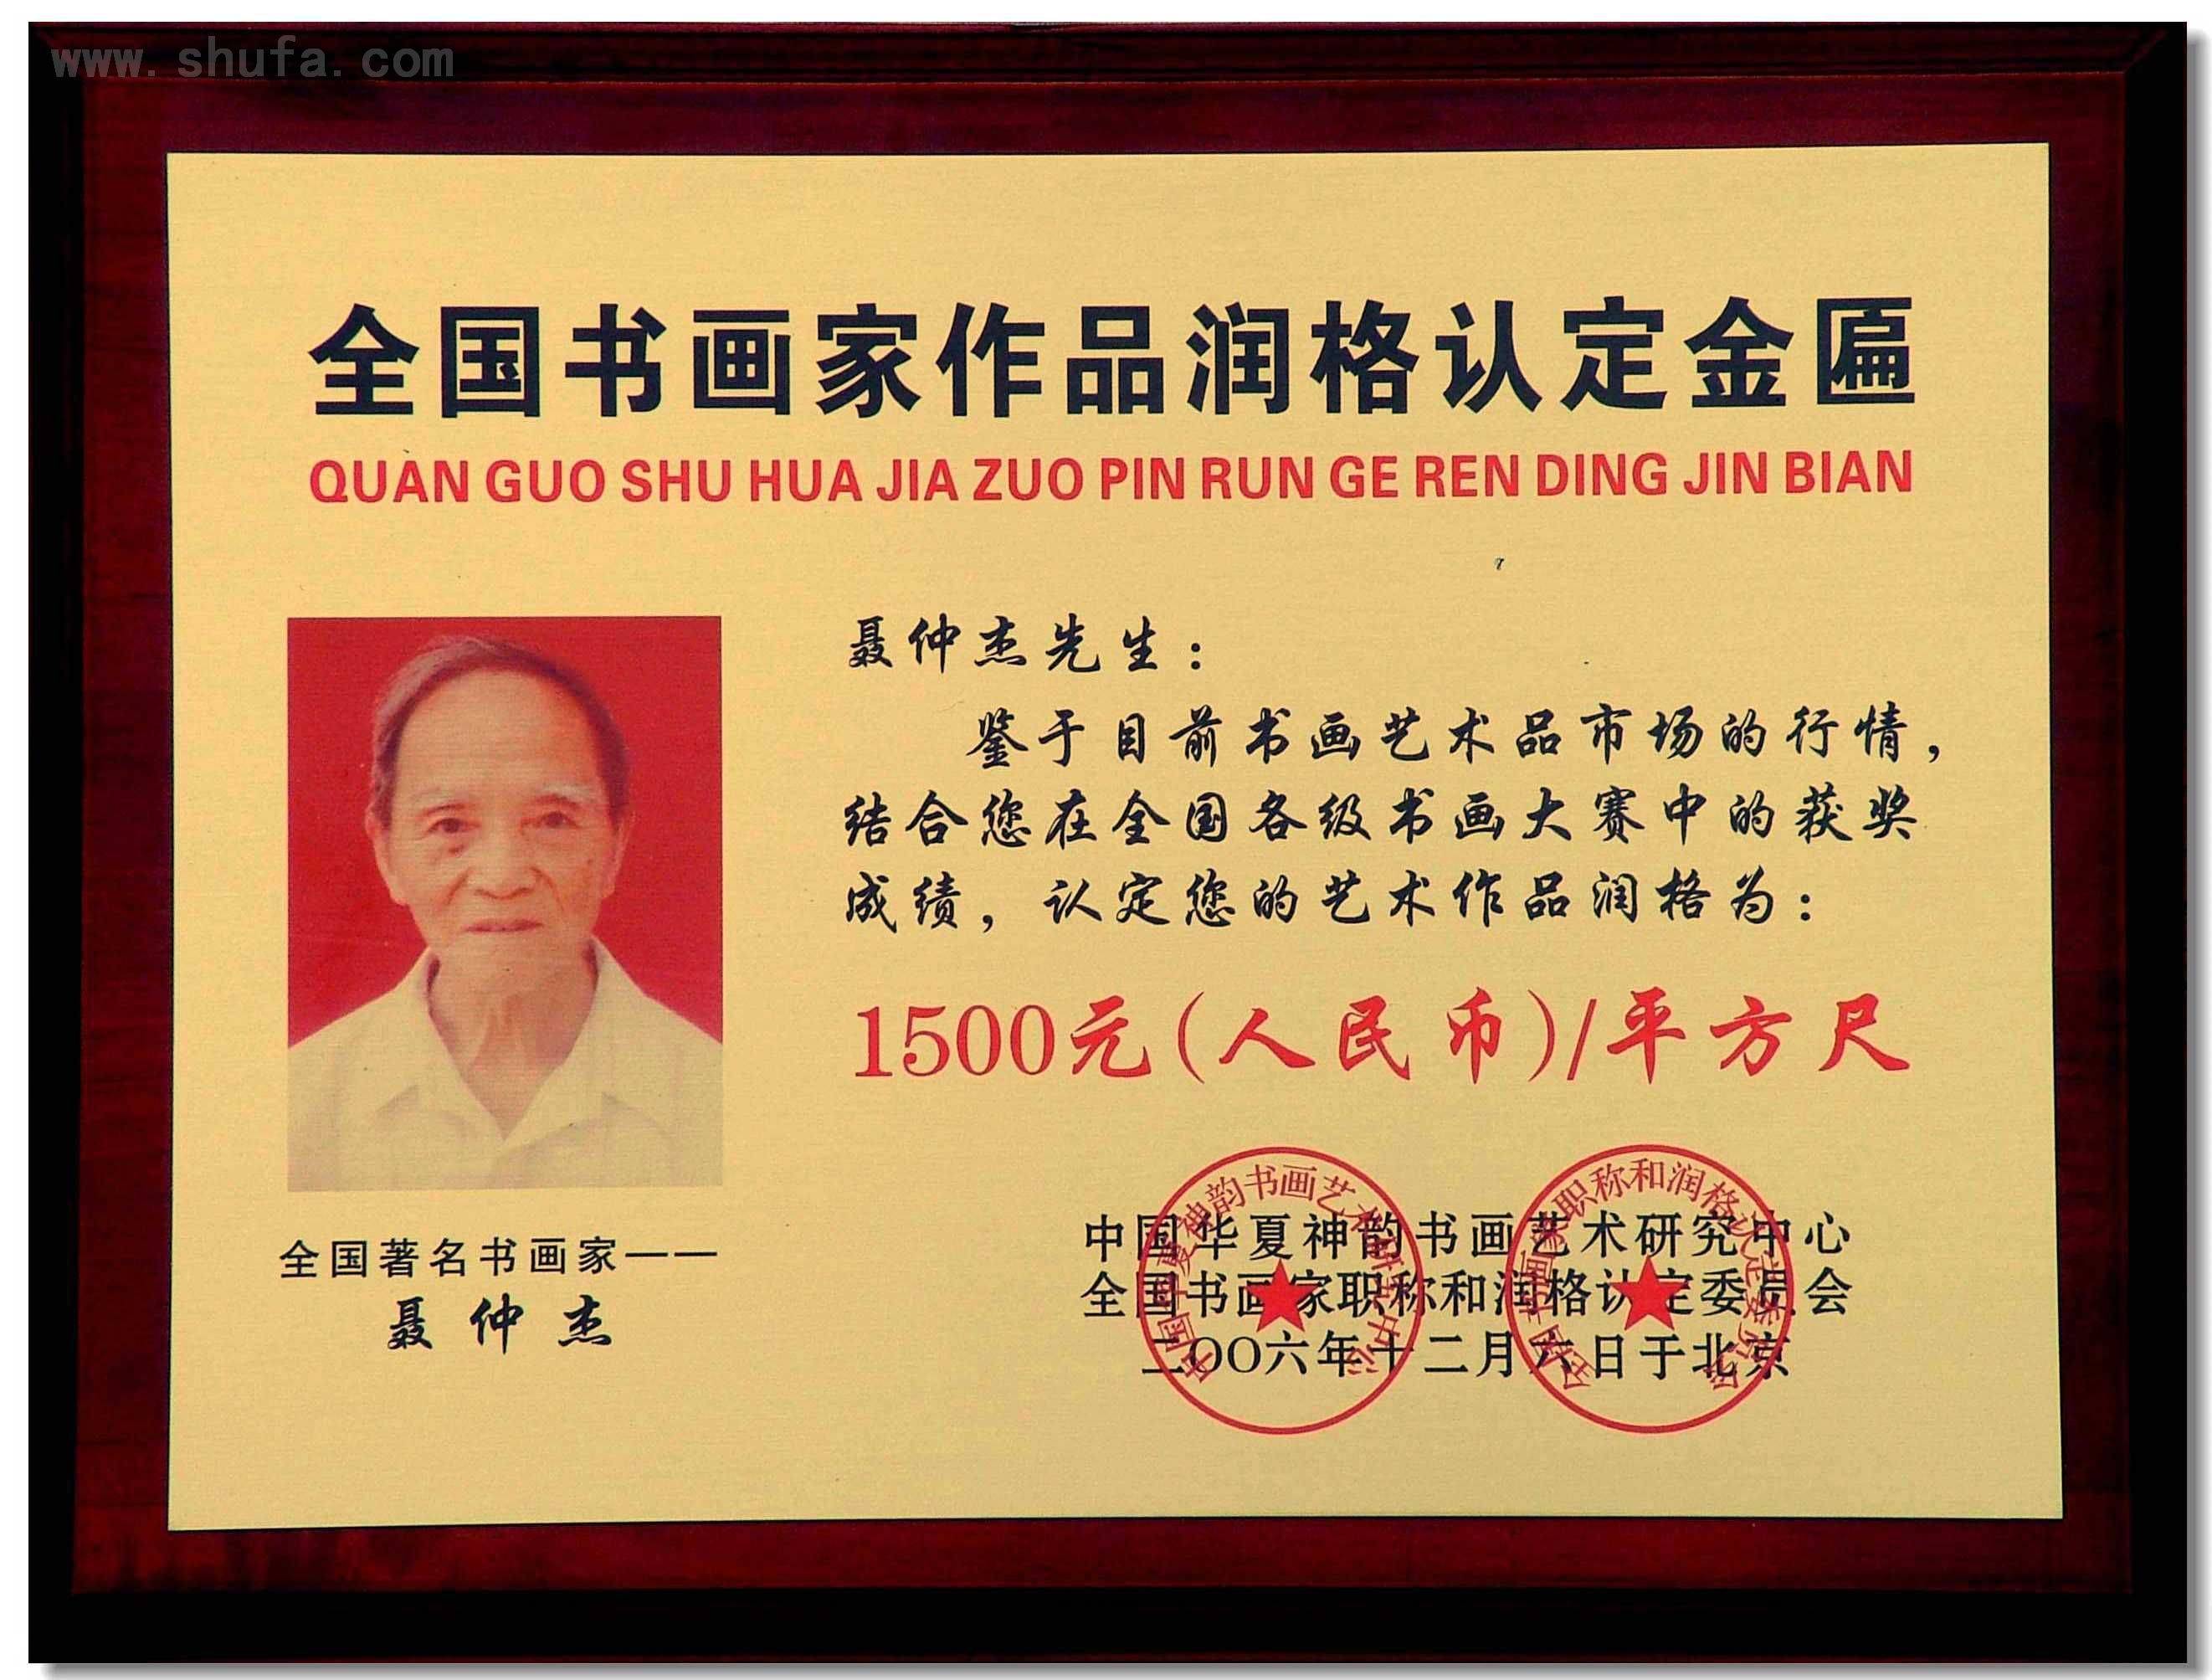 www.shufa.com
全国书画家作品润格认定金匾
QUAN GUO SHU HUA JIA ZUO PIN RUN GE REN DING JIN BIAN
聂仲杰先生：
鉴于目前书画艺术品市场的行情，
结合您在全国各级书画大赛中的获奖
成绩，认定您的艺术作品润格为：
1500元(人民币)/平方尺
全国著名书画家——
聂仲杰
中国华夏神韵书画艺术研究中心
全国书画家职称和润格认定委员会
二〇〇六年十二月六日于北京
中国华夏神韵书画艺术研究中心
全国书画家职称和润格认定委员会